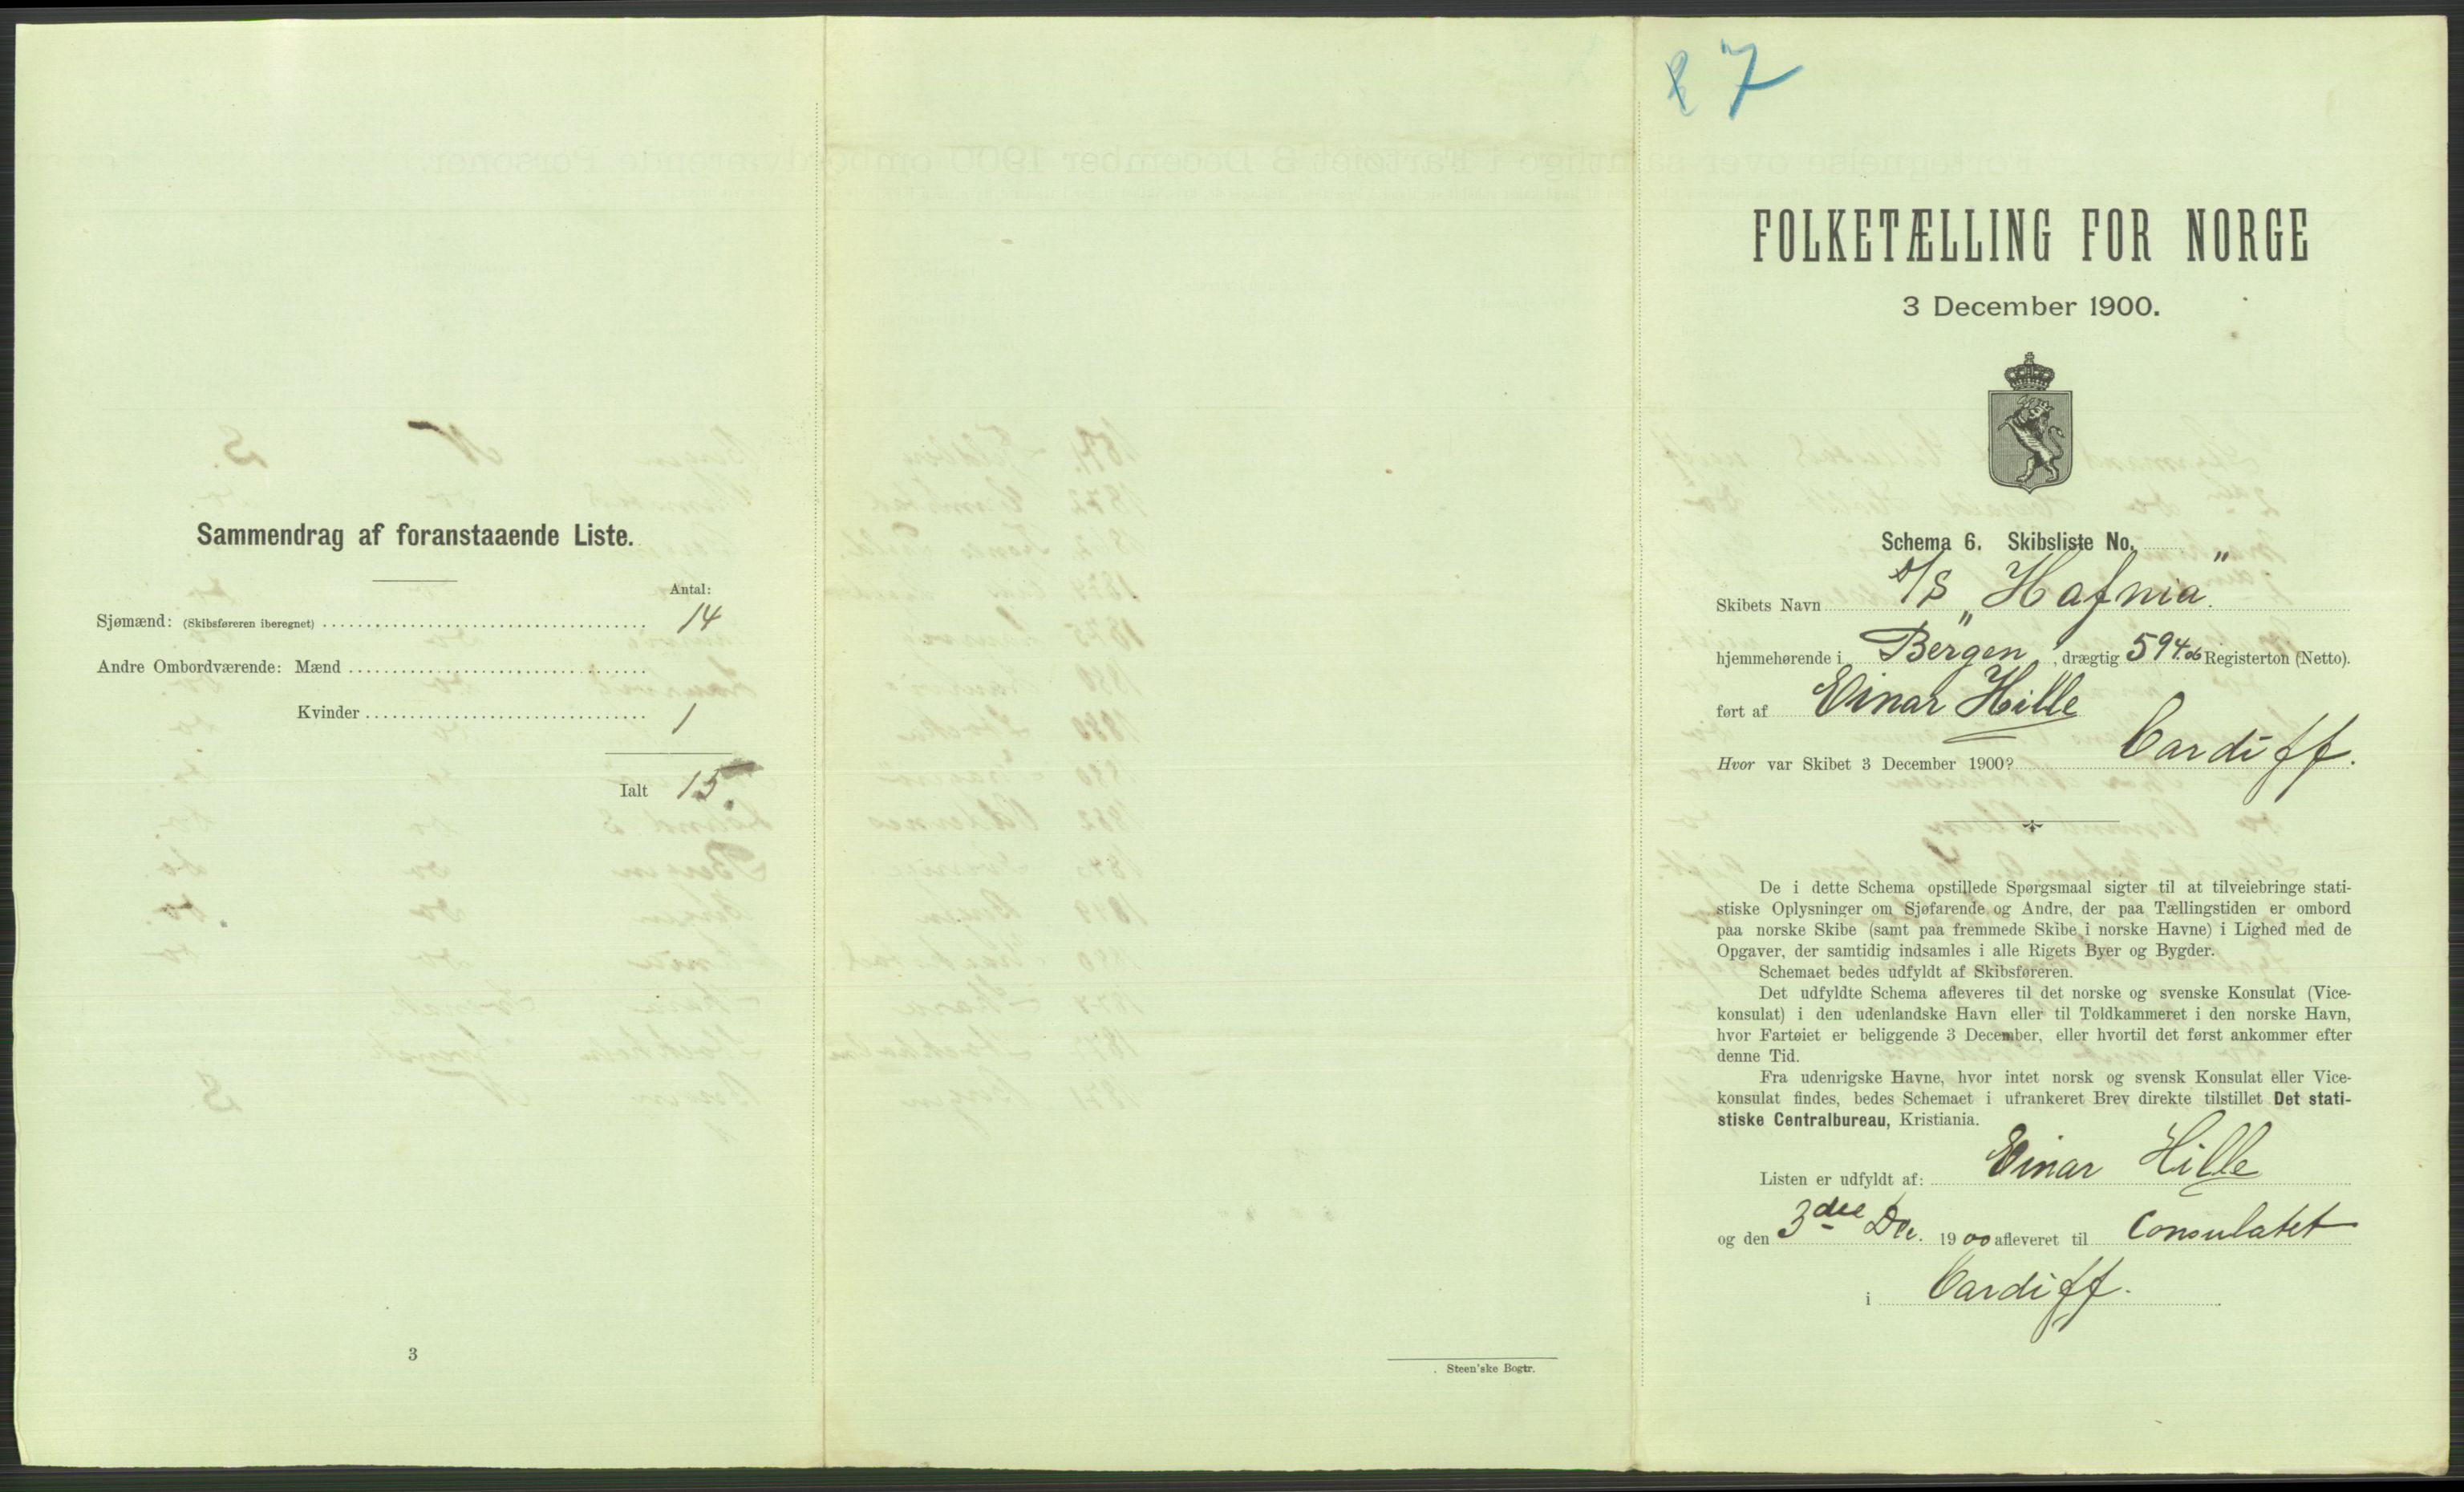 Sammendrag af foranstaaende Liste.
Antal:
Sjømænd: (Skibsføreren iberegnet) 14
Andre Ombordværende: Mænd
Kvinder 1
Ialt 15.
3
Steen'ske Bogtr.
8 7
FOLKETÆLLING FOR NORGE
3 December 1900.
Schema 6. Skibsliste No.
Skibets Navn D/S „Hafnia"
hjemmehørende i Bergen, drægtig 594.06 Registerton (Netto).
ført af Einar Hille
Hvor var Skibet 3 December 1900? Cardiff.
De i dette Schema opstillede Spørgsmaal sigter til at tilveiebringe stati-
stiske Oplysninger om Sjøfarende og Andre, der paa Tællingstiden er ombord
paa norske Skibe (samt paa fremmede Skibe i norske Havne) i Lighed med de
Opgaver, der samtidig indsamles i alle Rigets Byer og Bygder.
Schemaet bedes udfyldt af Skibsføreren.
Det udfyldte Schema afleveres til det norske og svenske Konsulat (Vice-
konsulat) i den udenlandske Havn eller til Toldkammeret i den norske Havn,
hvor Fartøiet er beliggende 3 December, eller hvortil det først ankommer efter
denne Tid.
Fra udenrigske Havne, hvor intet norsk og svensk Konsulat eller Vice-
konsulat findes, bedes Schemaet i ufrankeret Brev direkte tilstillet Det stati-
stiske Centralbureau, Kristiania.
Listen er udfyldt af: Einar Hille
og den 3die Dec. 1900 afleveret til Consulatet
i Cardiff.